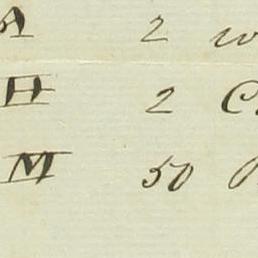 A 2 w
H 2 C
M 50